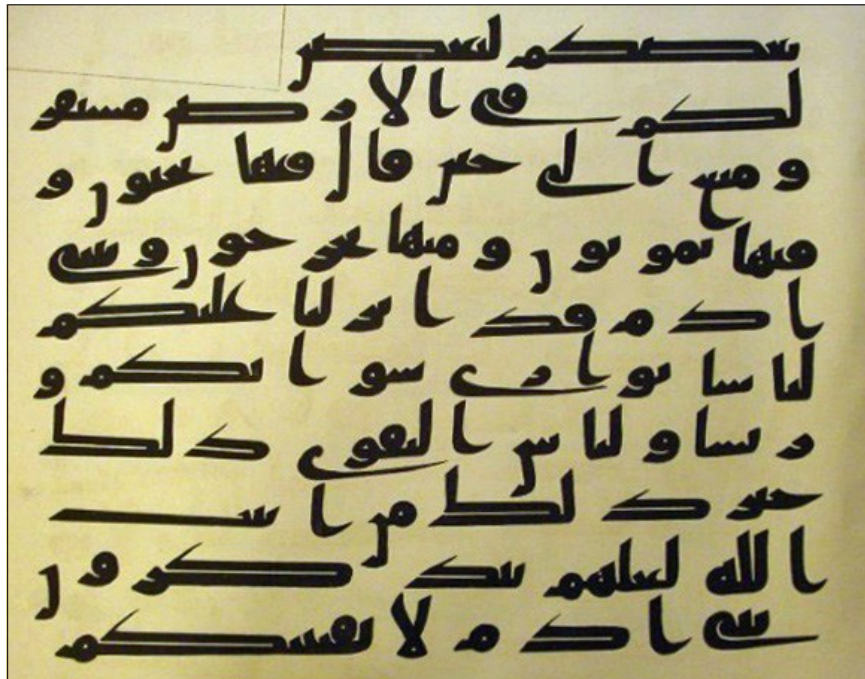 بعضكم لبعض
لكم في الارض مستقر
ومتع الى حين قال فيها تحيون و
فيها تموتون ومنها تخرجون يبني
ادم قد انزلنا عليكم
لباسا يواري سواتكم و
ريشا ولباس التقوى ذلك
خير ذلك من ايت
الله لعلهم يذكرون
يبني ادم لا يفتننكم